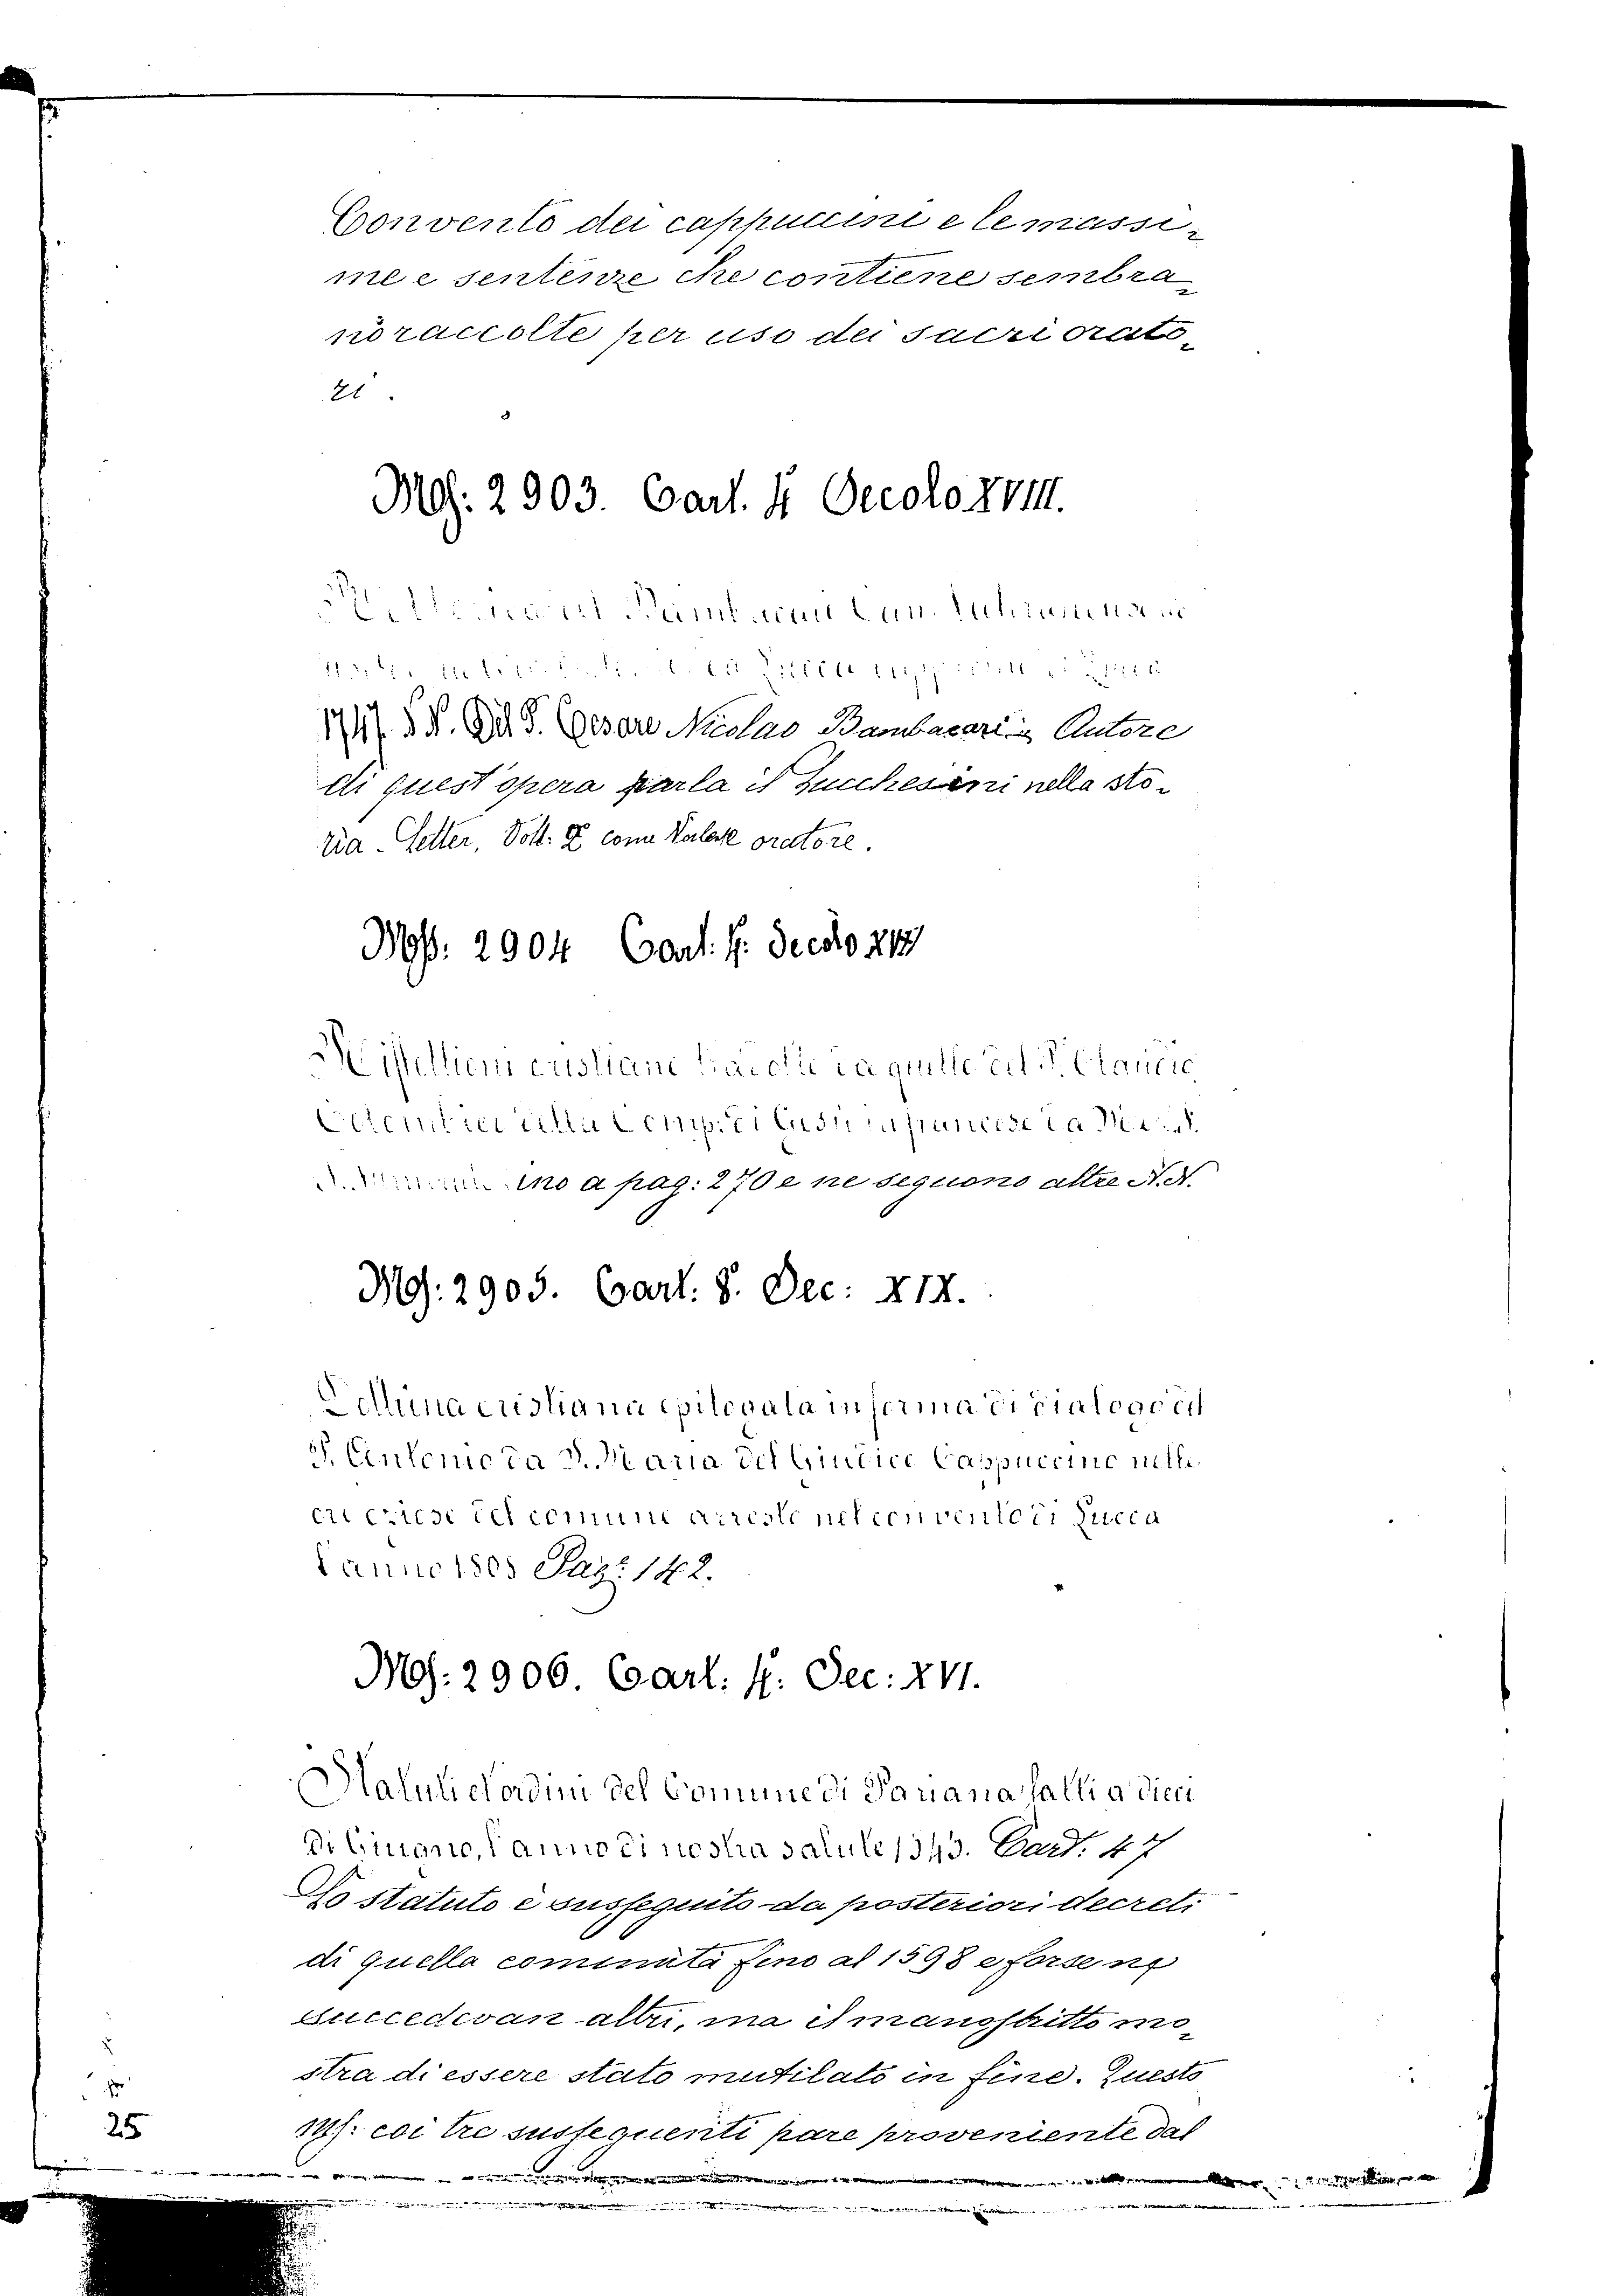 Convento dei cappuccini e le massi-
me e sentenze che contiene sembra-
no raccolte per uso dei sacri orato-
ri.
Ms: 2903. Cart. 4 Secolo XVIII.
Lucca
1747. Del P. Cesare Nicolao Bambacari Autore
di quest'opera parla il Lucchesini nella sto-
ria Letter. Vol. X come Valente oratore.
Mss: 2904 Cart. 4. Secolo XVII
Riflessioni cristiane tradotte da quelle del P. Claudio
Colombier della Comp. di Gesù in francese da
fino a pag: 270 e ne seguono altre N.N.
Ms: 2905. Cart. 8. Sec: XIX.
Dottrina cristiana epilogata in forma di dialogo dal
P. Antonio da S. Maria del Giudice Cappuccino nelle
del comune arresto nel convento di Lucca
l'anno 1808 Pag: 142.
Ms: 2906. Cart: 4. Sec: XVI.
Statuti et ordini del Comune di Pariana fatti a dieci
di Giugno, l'anno di nostra salute 1543. Cart. 47
Lo statuto è susseguito da posteriori decreti
di quella comunità fino al 1598 e forse ne
succedevan altri, ma il manoscritto mo-
stra di essere stato mutilato in fine. Questo
Ms. coi tre susseguenti pare proveniente dal
25